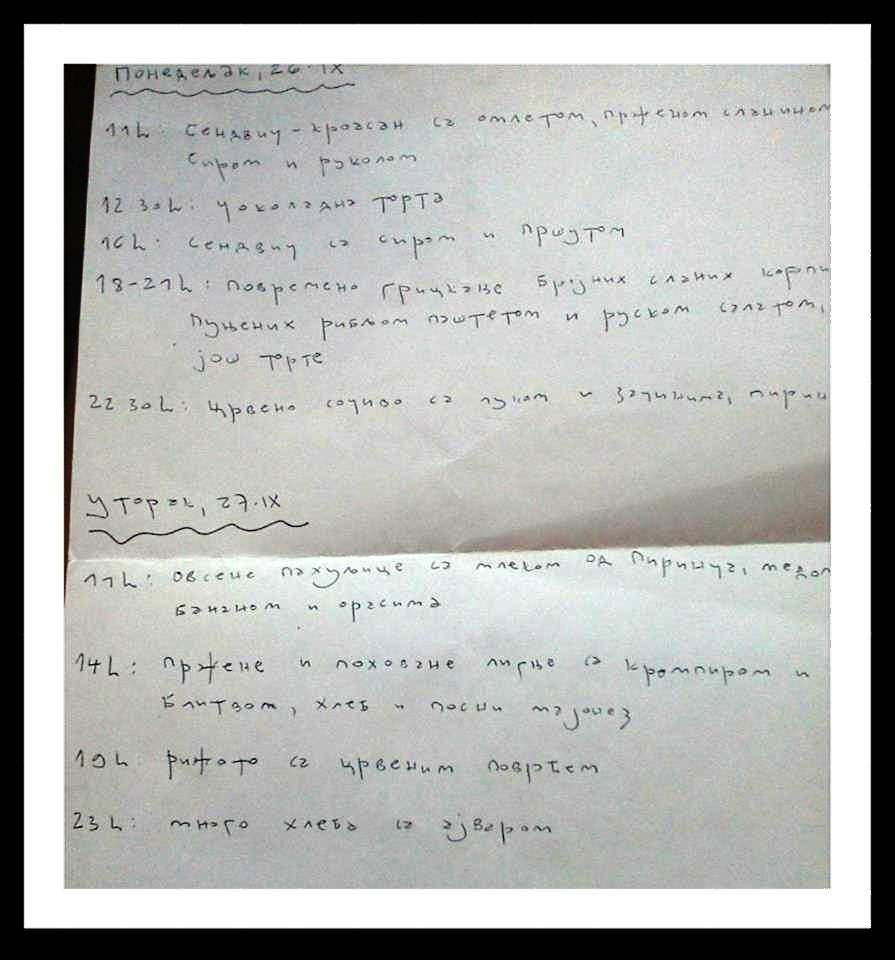 Понедељак, 26.IX
11h: сендвич-кроасан са омлетом, прженом сланином
сиром и руколом
12 30h: чоколадна торта
16h: сендвич са сиром и пршутом
18-21h: повремено грицкање бројних сланих корпи
пуњених рибљом паштетом и руском салатом,
још торте
22 30h: црвено сочиво са луком и зачинима, пирин
Уторак, 27.IX
11h: овсене пахуљице са млеком од пиринча, медом
бананом и орасима
14h: пржене и поховане лигње са кромпиром и
блитвом, хлеб и посни мајонез
19h: рижото са црвеним поврћем
23h: много хлеба са ајваром